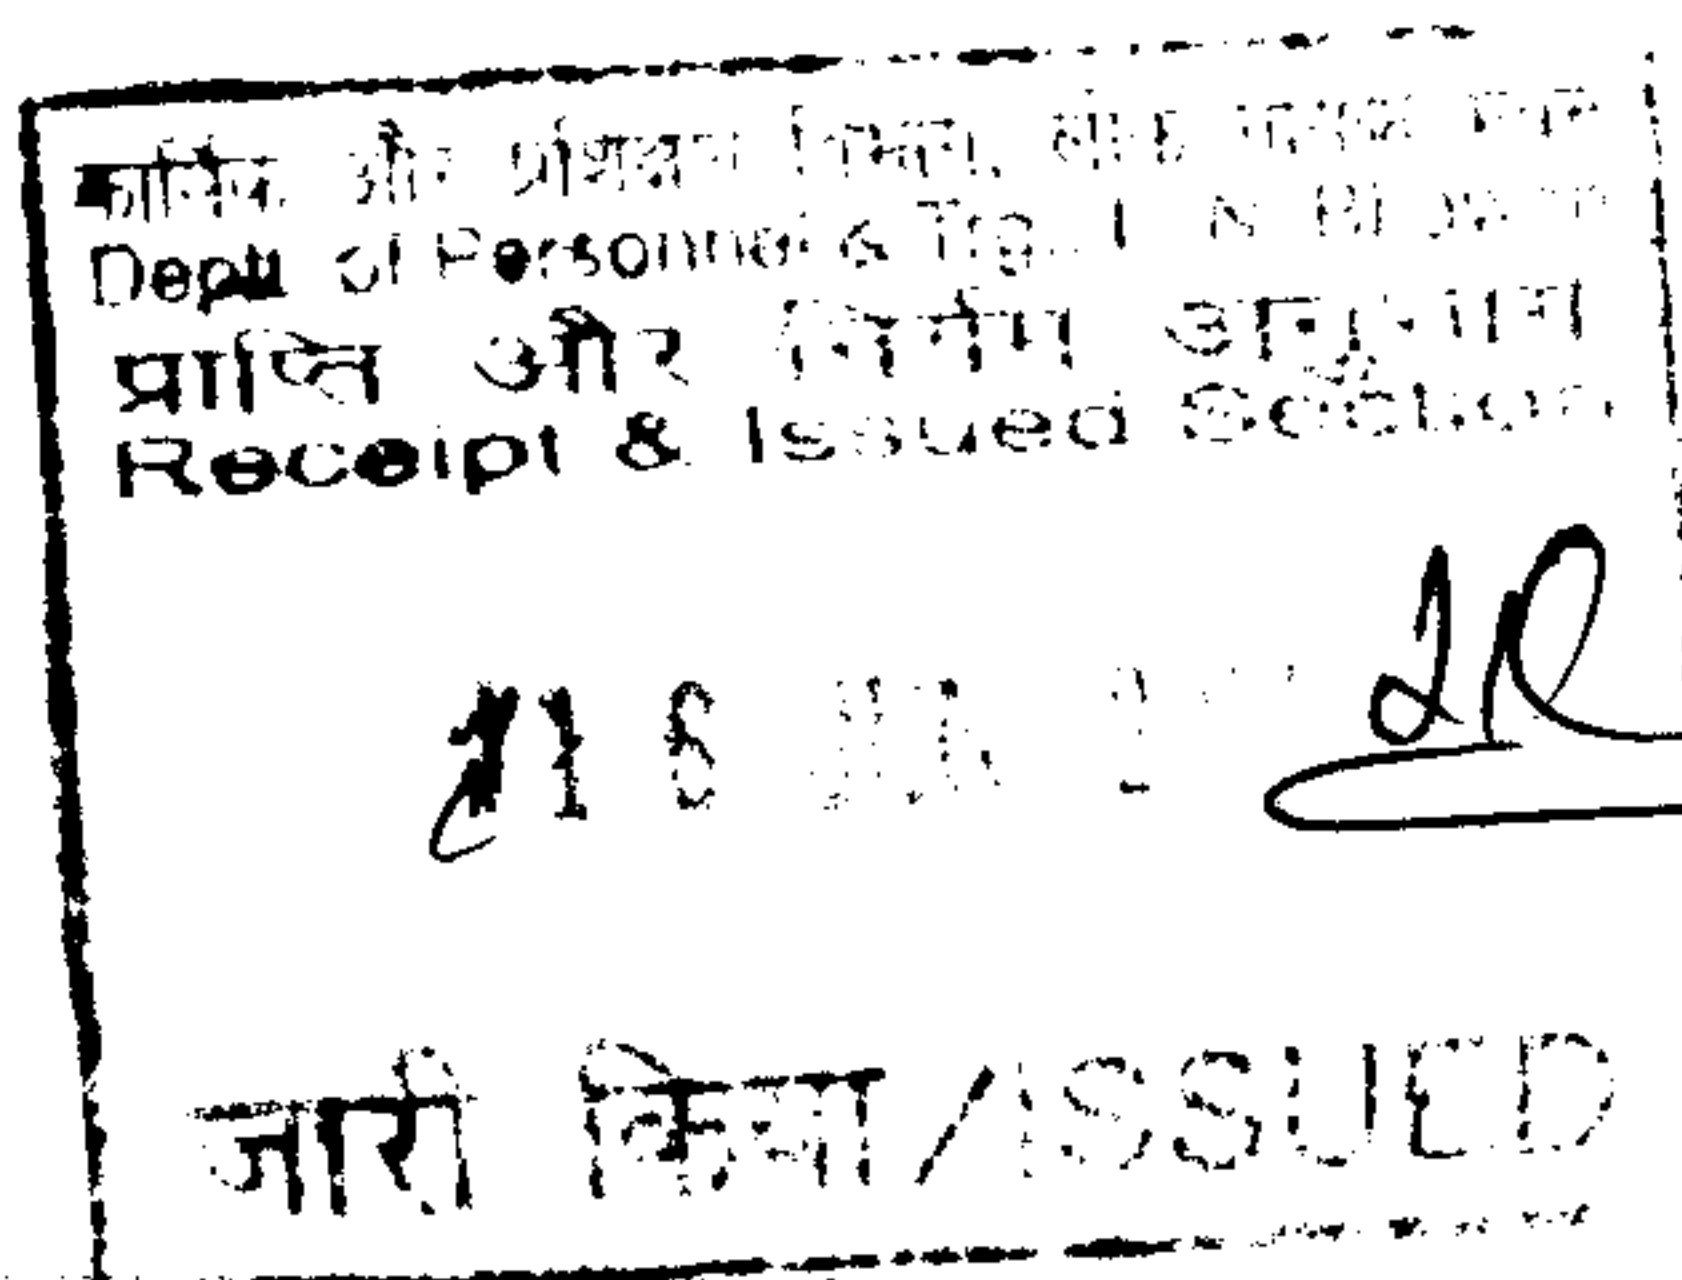 कार्मिक और प्रशिक्षण विभाग, लोक नायक भवन
Deptt of Personnel & Trg. L N Bhawan
प्राप्ति और निर्गम अनुभाग
Receipt & Issued Section
16
जारी किया/ISSUED